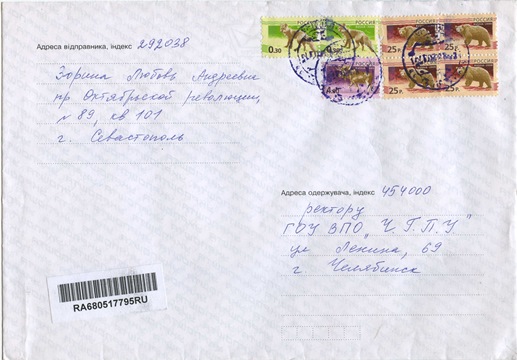 Адреса відправника, індекс 292038
Зорина Любовь Андреевна
пр Октябрьской революции,
№ 89, кв 101
г. Севастополь
РОССИЯ
РОССИЯ
РОССИЯ
0.30
25 Р.
25 Р.
25 Р.
25 Р.
Адреса одержувача, індекс 454000
ректору
ГОУ ВПО „Ч.Г.П.У"
ул Ленина, 69
г Челябинск
RA680517795RU